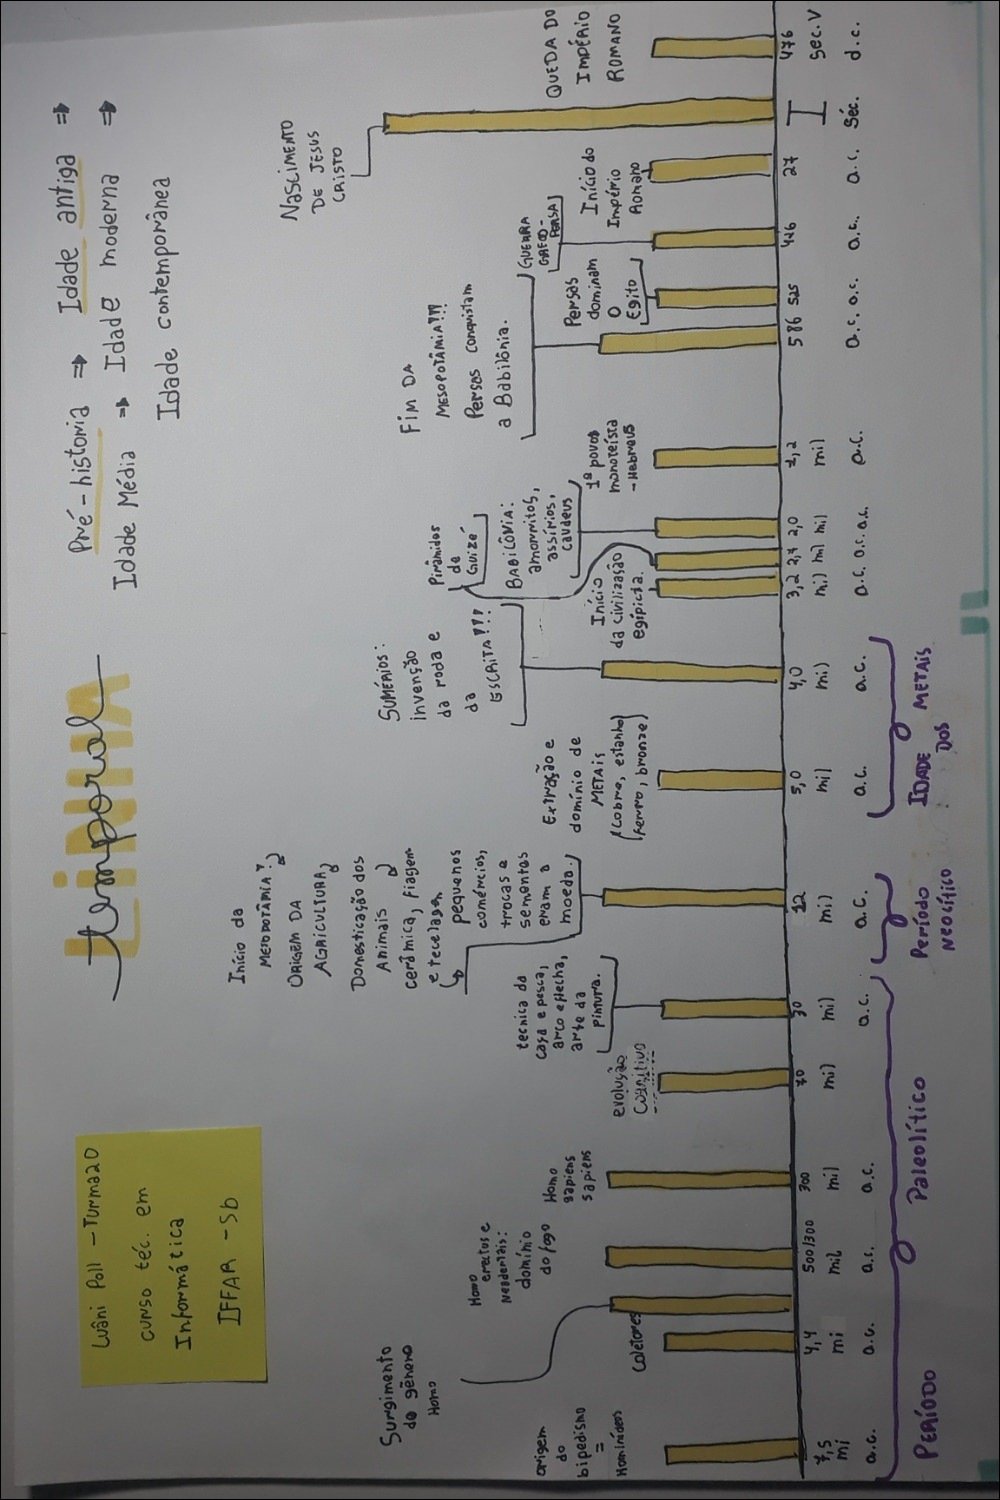 LiNHA
temporal
Pré-historia ⇒ Idade antiga ⇒
Idade Média ⇒ Idade moderna ⇒
Idade contemporânea
Luâni Poll - Turma20
curso téc. em
Informática
IFFAR - Sb
origem
do
bipedismo
=
Hominídeos
Surgimento
do gênero
Homo
coletores
Homo
erectus e
Neadertais:
domínio
do fogo
Homo
sapiens
sapiens
evolução
Cognitivo
tecnica da
casa e pesca,
arco e flecha,
arte da
pintura.
Início da
MESOPOTÂMIA!
ORIGEM DA
AGRICULTURA
Domesticação dos
Animais
cerâmica, fiagem
e tecelagem
pequenos
comércios,
trocas e
sementes
eram a
moeda.
Extração e
domínio de
METAIS
(cobre, estanho
ferro, bronze)
SUMÉRIOS:
invenção
da roda e
da
ESCRITA!!!
Início
da civilização
egípicia.
Pirâmides
de
Guizé
BABILÔNIA:
amorritos,
assírios,
caudeus
1ª povos
monoteísta
- Hebreus
FIM DA
MESOPOTÂMIA!!!
Persas conquistam
a Babilônia.
Persas
dominam
o
Egito
GUERRA
GRECO-
PERSA
Início do
Império
Romano
NASCIMENTO
DE JESUS
CRISTO
QUEDA DO
IMPÉRIO
ROMANO
7,5
mi
a.c.
4,4
mi
a.c.
500/300
mil
a.c.
300
mil
a.c.
70
mil
30
mil
a.c.
12
mil
a.c.
5,0
mil
a.c.
4,0
mil
a.c.
3,2
mil
a.c.
mil
a.c.
2,0
mil
a.c.
mil
a.c.
586
a.c.
525
a.c.
a.c.
27
a.c.
I
Séc.
476
sec. V
d.c.
PERÍODO Paleolítico
Período
NEOLÍTICO
IDADE DOS METAIS